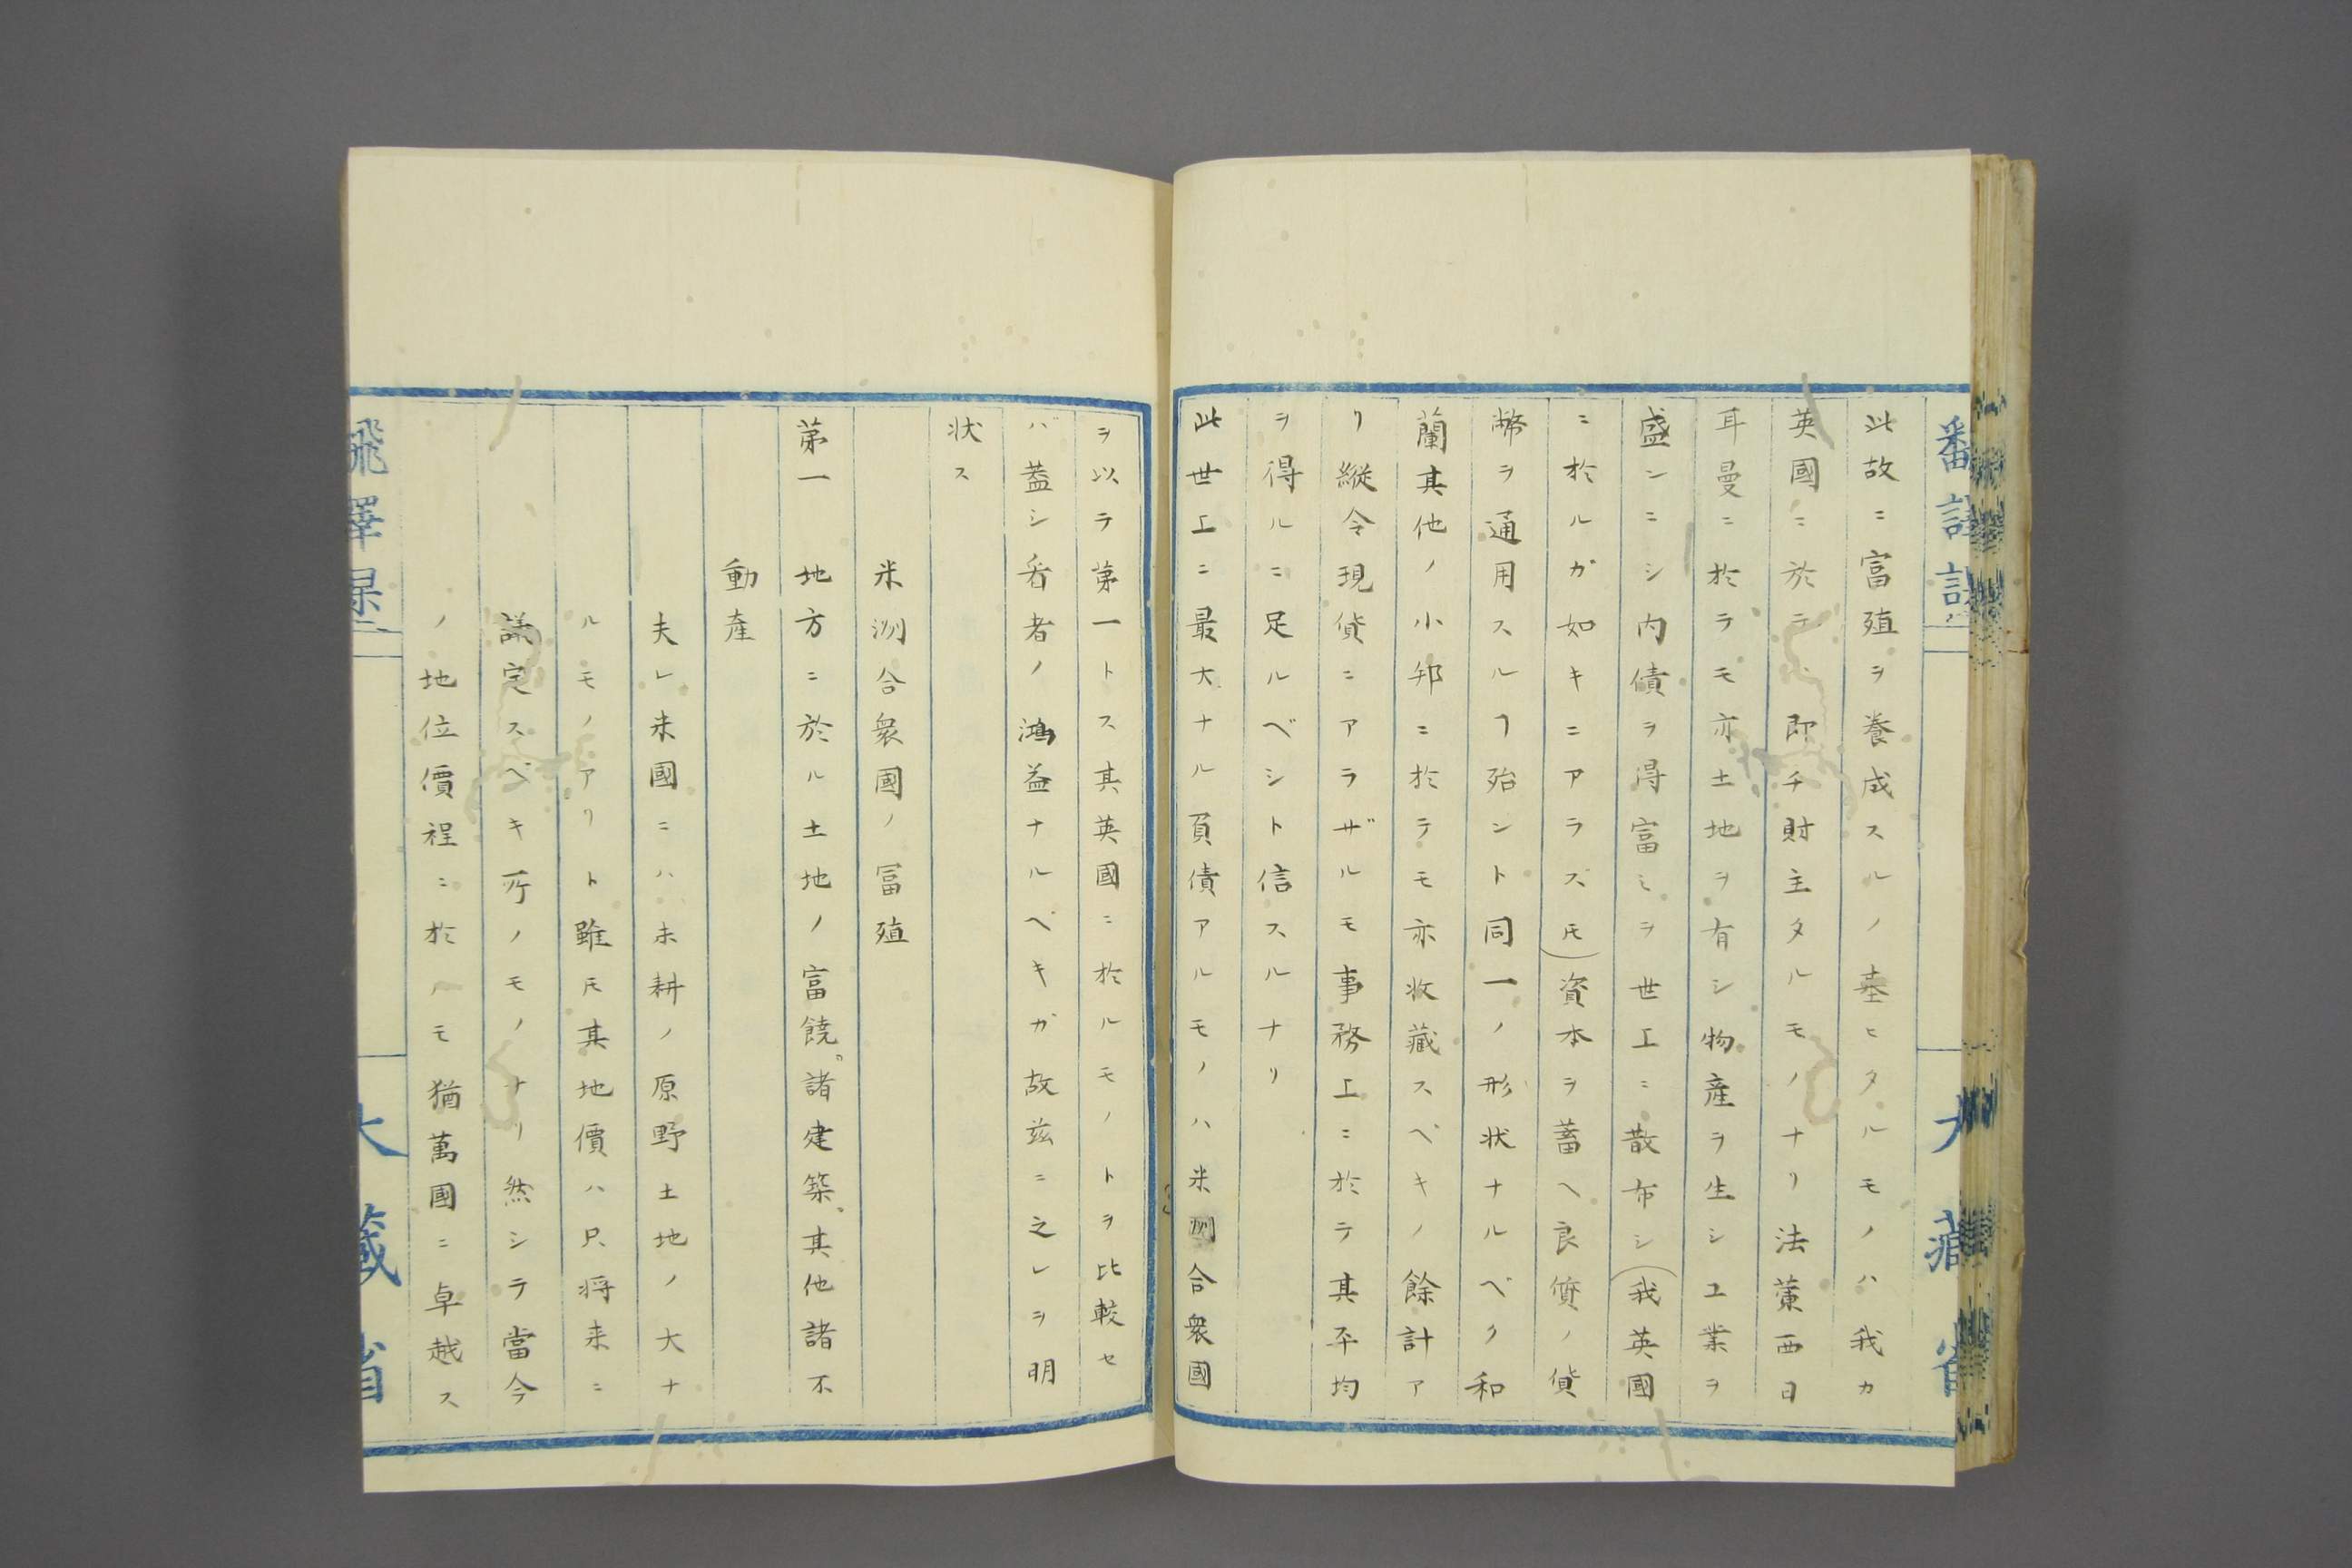 此故ニ富殖ヲ養成スルノ基ヒタルモノハ我カ
英國ニ於テハ即チ財主タルモノナリ法蘭西日
耳曼ニ於テモ亦土地ヲ有シ物産ヲ生シ工業ヲ
盛ンニシ内債ヲ得富ミヲ世上ニ散布シ(我英國
ニ於ルガ如キニアラズ𪜈)資本ヲ蓄ヘ良質ノ貨
幣ヲ通用スルヿ殆ント同一ノ形状ナルベク和
蘭其他ノ小邦ニ於テモ亦收藏スベキノ餘計ア
リ縦令現貨ニアラザルモ事務上ニ於テ其平均
ヲ得ルニ足ルベシト信スルナリ
此世上ニ最大ナル負債アルモノハ米洲合衆國
ヲ以テ第一トス其英國ニ於ルモノトヲ比較セ
バ蓋シ看者ノ鴻益ナルベキガ故茲ニ之レヲ明
状ス
米洲合衆國ノ冨殖
第一 地方ニ於ル土地ノ富饒。諸建築。其他諸不
動産
夫レ米國ニハ未耕ノ原野土地ノ大ナ
ルモノアリト雖𪜈其地價ハ只将来ニ
議定スベキ所ノモノナリ然シテ當今
ノ地位價程ニ於ルモ猶萬國ニ卓越ス
大藏省